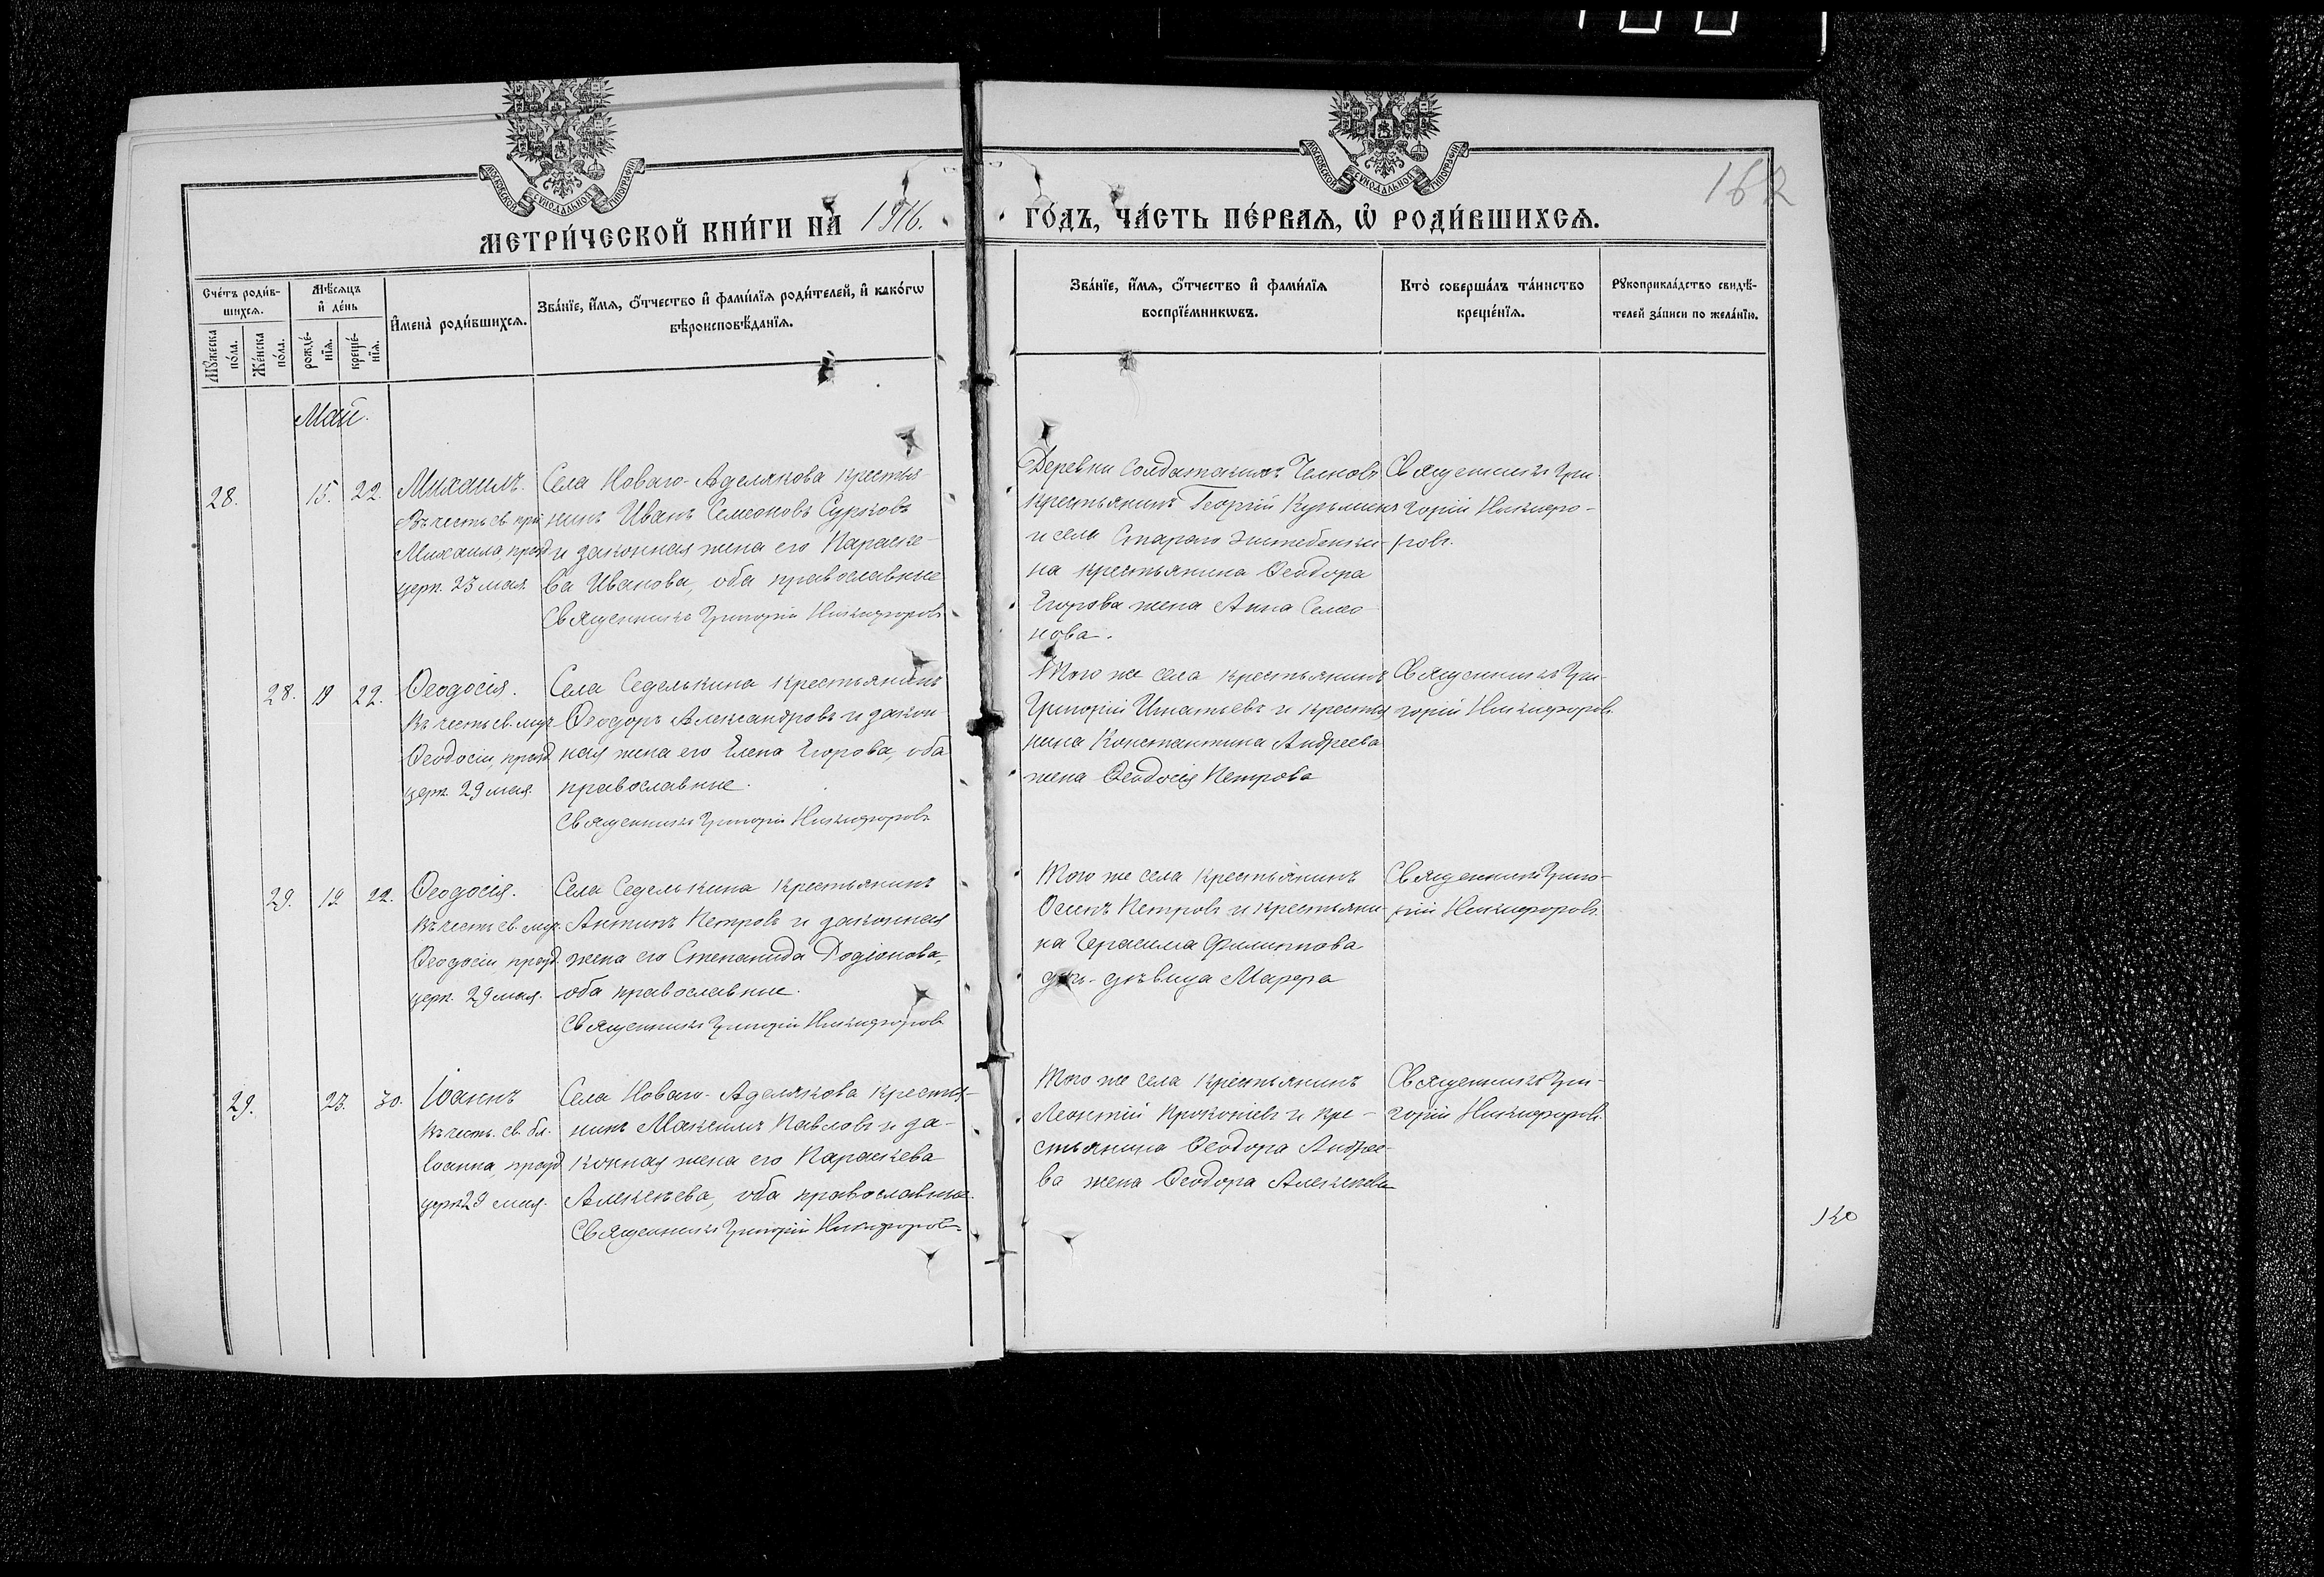 МОСКОВСКОЙ СѴНОДАЛЬНОЙ ТИПОГРАФІИ
МОСКОВСКОЙ СѴНОДАЛЬНОЙ ТИПОГРАФІИ
162
МЕТРИ́ЧЕСКОЙ КНИ́ГИ НА̀ 1916.
ГО́ДЪ, ЧА́СТЬ ПЕ́РВАѦ, Ѽ РОДИ́ВШИХСѦ.
Сче́тъ роди́в-
шихсѧ.
Мѣ́сѧцъ
и҆ де́нь
И҆мена̀ роди́вшихсѧ.
Зва́нїе, и҆́мѧ, ѻ҆́тчество и҆ фами́лїѧ роди́телей, и҆ како́гѡ
вѣроисповѣ́данїѧ.
Мꙋ́жеска
по́ла.
Же́нска
по́ла.
рожде́-
нїѧ.
креще́-
нїѧ.
Зва́нїе, и҆́мѧ, ѻ҆́тчество и҆ фами́лїѧ
воспрїе́мникѡвъ.
Кто̀ соверша́лъ та́инство
креще́нїѧ.
Рꙋкоприкла́дство свидѣ́-
телей за́писи по жела́нїю.
Май.
28.
15. 22.
Михаилъ.
Въ честь св.
Михаила, празд.
церк. 23 мая.
Села Новаго-Аделякова крестья-
нинъ Иванъ Семеоновъ Сурковъ
и законная жена его Параске-
ва Иванова, оба православные
Священникъ Григорій Никифоровъ
Деревни
крестьянинъ Георгій Кузьминъ
и села Стараго
на крестьянина Ѳеодора
Егорова жена Анна Семео-
нова.
Священникъ Гри-
горій Никифо-
ровъ.
28. 19 22.
Ѳеодосія.
Въ честь св. муч.
Ѳеодосіи, празд.
церк. 29 мая.
Села Седелькина крестьянинъ
Ѳеодоръ Александровъ и закон-
ная жена его Елена Егорова, оба
православные.
Священникъ Григорій Никифоровъ
Того же села крестьянинъ
Григорій Игнатьевъ и крестья-
нина Константина Андреева
жена Ѳеодосія Петрова
Священникъ Гри-
горій Никифоровъ.
29. 19 22.
Ѳеодосія.
Въ честь св. муч.
Ѳеодосіи, празд.
церк. 29 мая.
Села Седелькина крестьянинъ
Антипъ Петровъ и законная
жена его Степанида Родіонова,
оба православные.
Священникъ Григорій Никифоровъ
Того же села крестьянинъ
Осипъ Петровъ и крестьяни-
на Герасима Филиппова
дѣвица Марфа
Священникъ Григо-
рій Никифоровъ.
29.
23. 30.
Іоаннъ
Въ честь св. бл.
Іоанна, празд.
церк 29 мая.
Села Новаго-Аделякова крестья-
нинъ Максимъ Павловъ и за-
конная жена его Параскева
Алексѣева, оба православные.
Священникъ Григорій Никифоровъ.
Того же села крестьянинъ
Леонтій Прокопіевъ и кре-
стьянина Ѳеодора Андрее-
ва жена Ѳеодора Алексѣева
Священникъ Гри-
горій Никифоровъ.